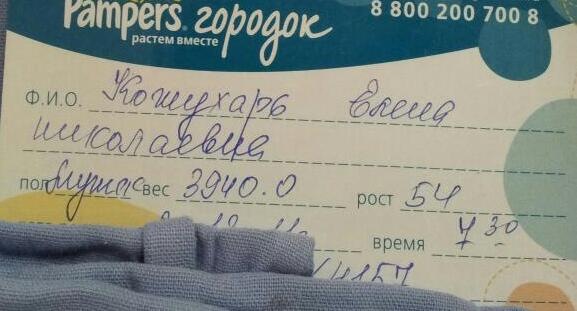 Pampers городок
растем вместе
8 800 200 700 8
Ф.И.О. Кожухарь Елена
николаевна
пол мужс вес 3940.0 рост 54
время 7 30
4157